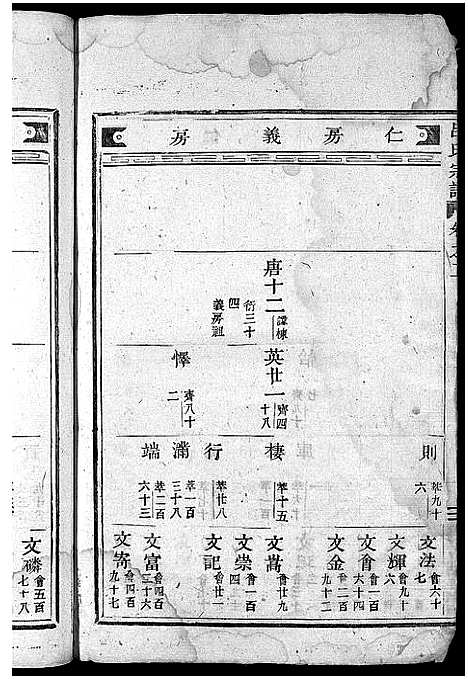 呂氏宗譜
仁房義房
唐十二 諱棟
衍三十四
義房祖
英廿一 齊四十八
懌 齊八十二
則 萃九十六
棲 萃十五
行 萃廿八
滿 萃一百三十八
端 萃二百六十三
文法 會六十七
文輝 會六
文會 會一百六十四
文金 會九十三
文嵩 會廿九
文崇 會一百四
文記 會廿一
文富 會四百三十六
文寄 會四百九十七
文磷 會五百七十八